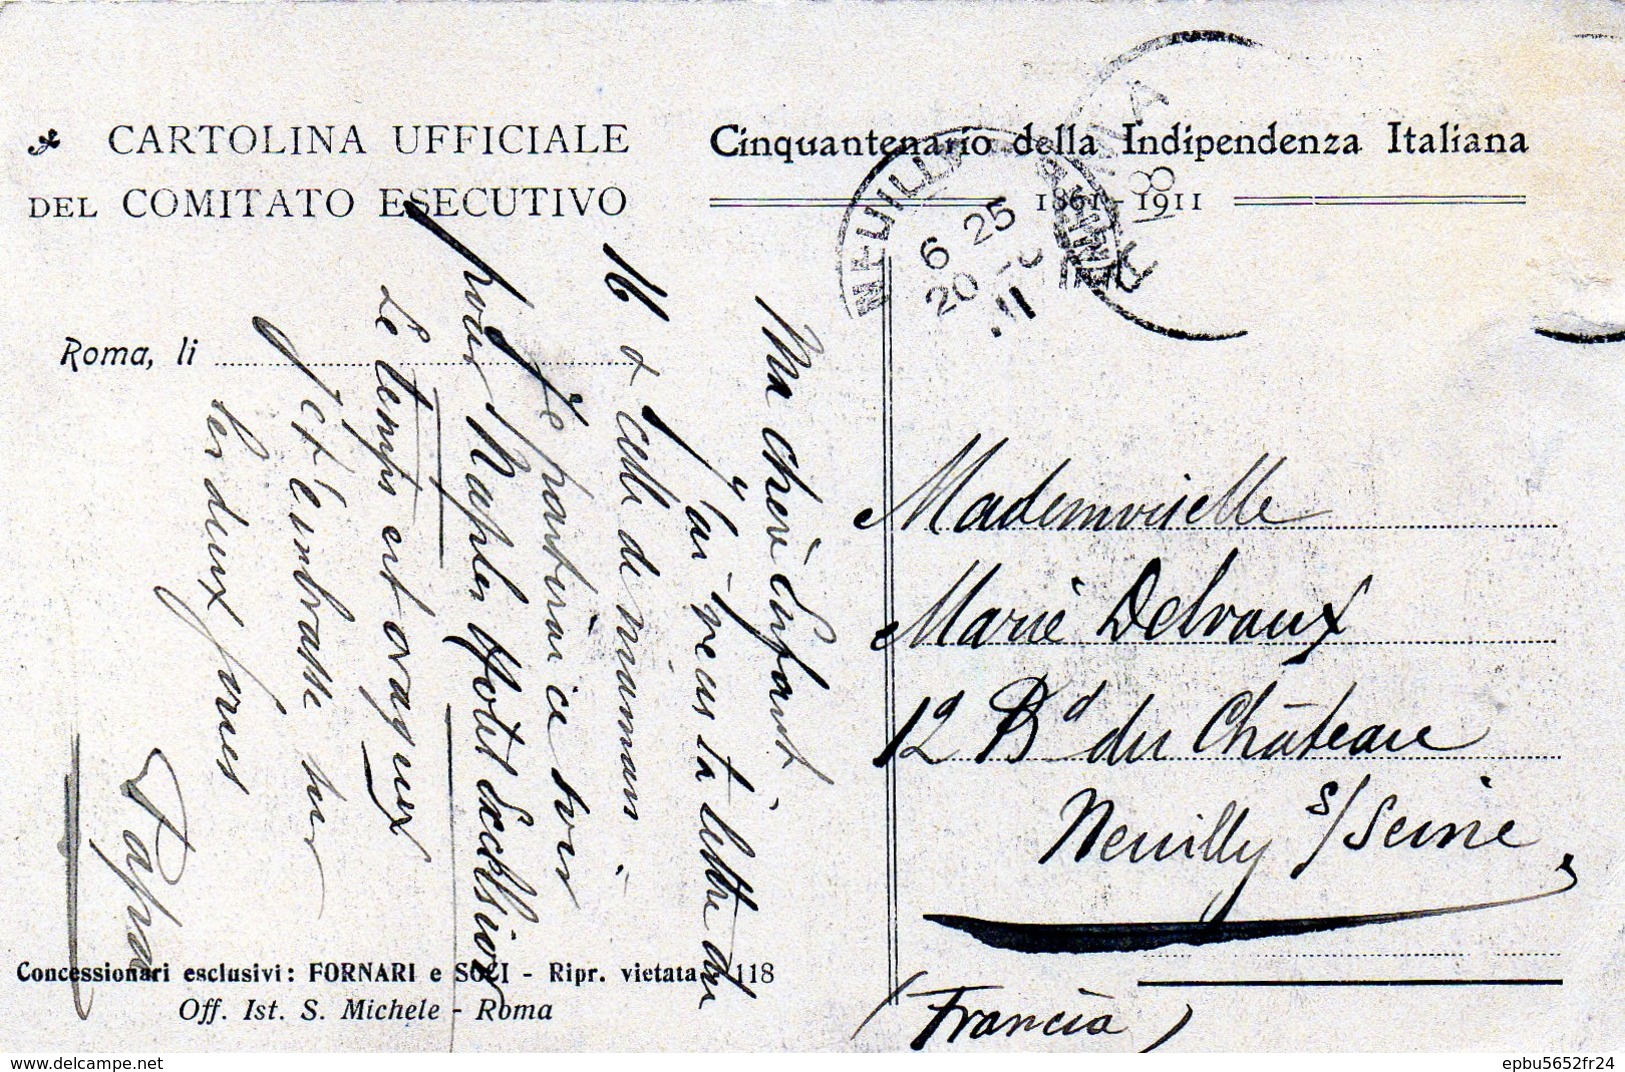 CARTOLINA UFFICIALE
DEL COMITATO ESECUTIVO
Cinquantenario della Indipendenza Italiana
1861-1911
NEUILLY
6 25
20
11
Roma, li
Ma chère Enfant
J'ai reçus ta lettre du
16 & celle de maman.
Je partirai ce soir
pour Naples Hotel Excelsior
Le temps est orageux
Je t'embrasse sur
les deux joues
Papa
Mademoiselle
Marie Delvaux
12 Bd du Château
Neuilly s/Seine
(Francia)
Concessionari esclusivi: FORNARI e SOCI - Ripr. vietata 118
Off. Ist. S. Michele - Roma
www.delcampe.net
epbu5652fr24